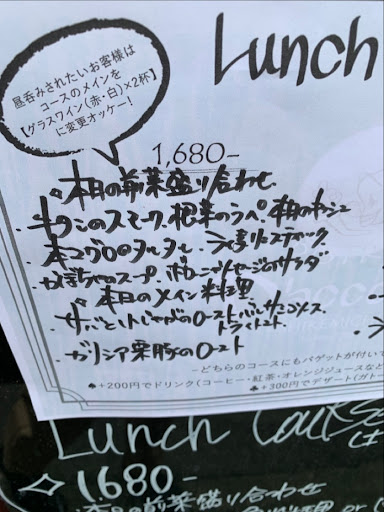 Lunch
昼呑みされたいお客様は
コースのメインを
【グラスワイン(赤・白)×2杯】
に変更オッケー!
1,680-
◇本日の前菜盛り合わせ
根菜のラペ・本日のキッシュ
本マグロのタルタル
かぼちゃのスープ ボロニアソーセージのサラダ
◇本日のメイン料理
・サバとじゃがいものロースト バルサミコソース
・ガリシア栗豚のロースト
−どちらのコースにもバゲットが付いて
♠+200円でドリンク(コーヒー・紅茶・オレンジジュースなど
♠+300円でデザート(ガト
Lunch
1680-
本日の前菜盛り合わせ